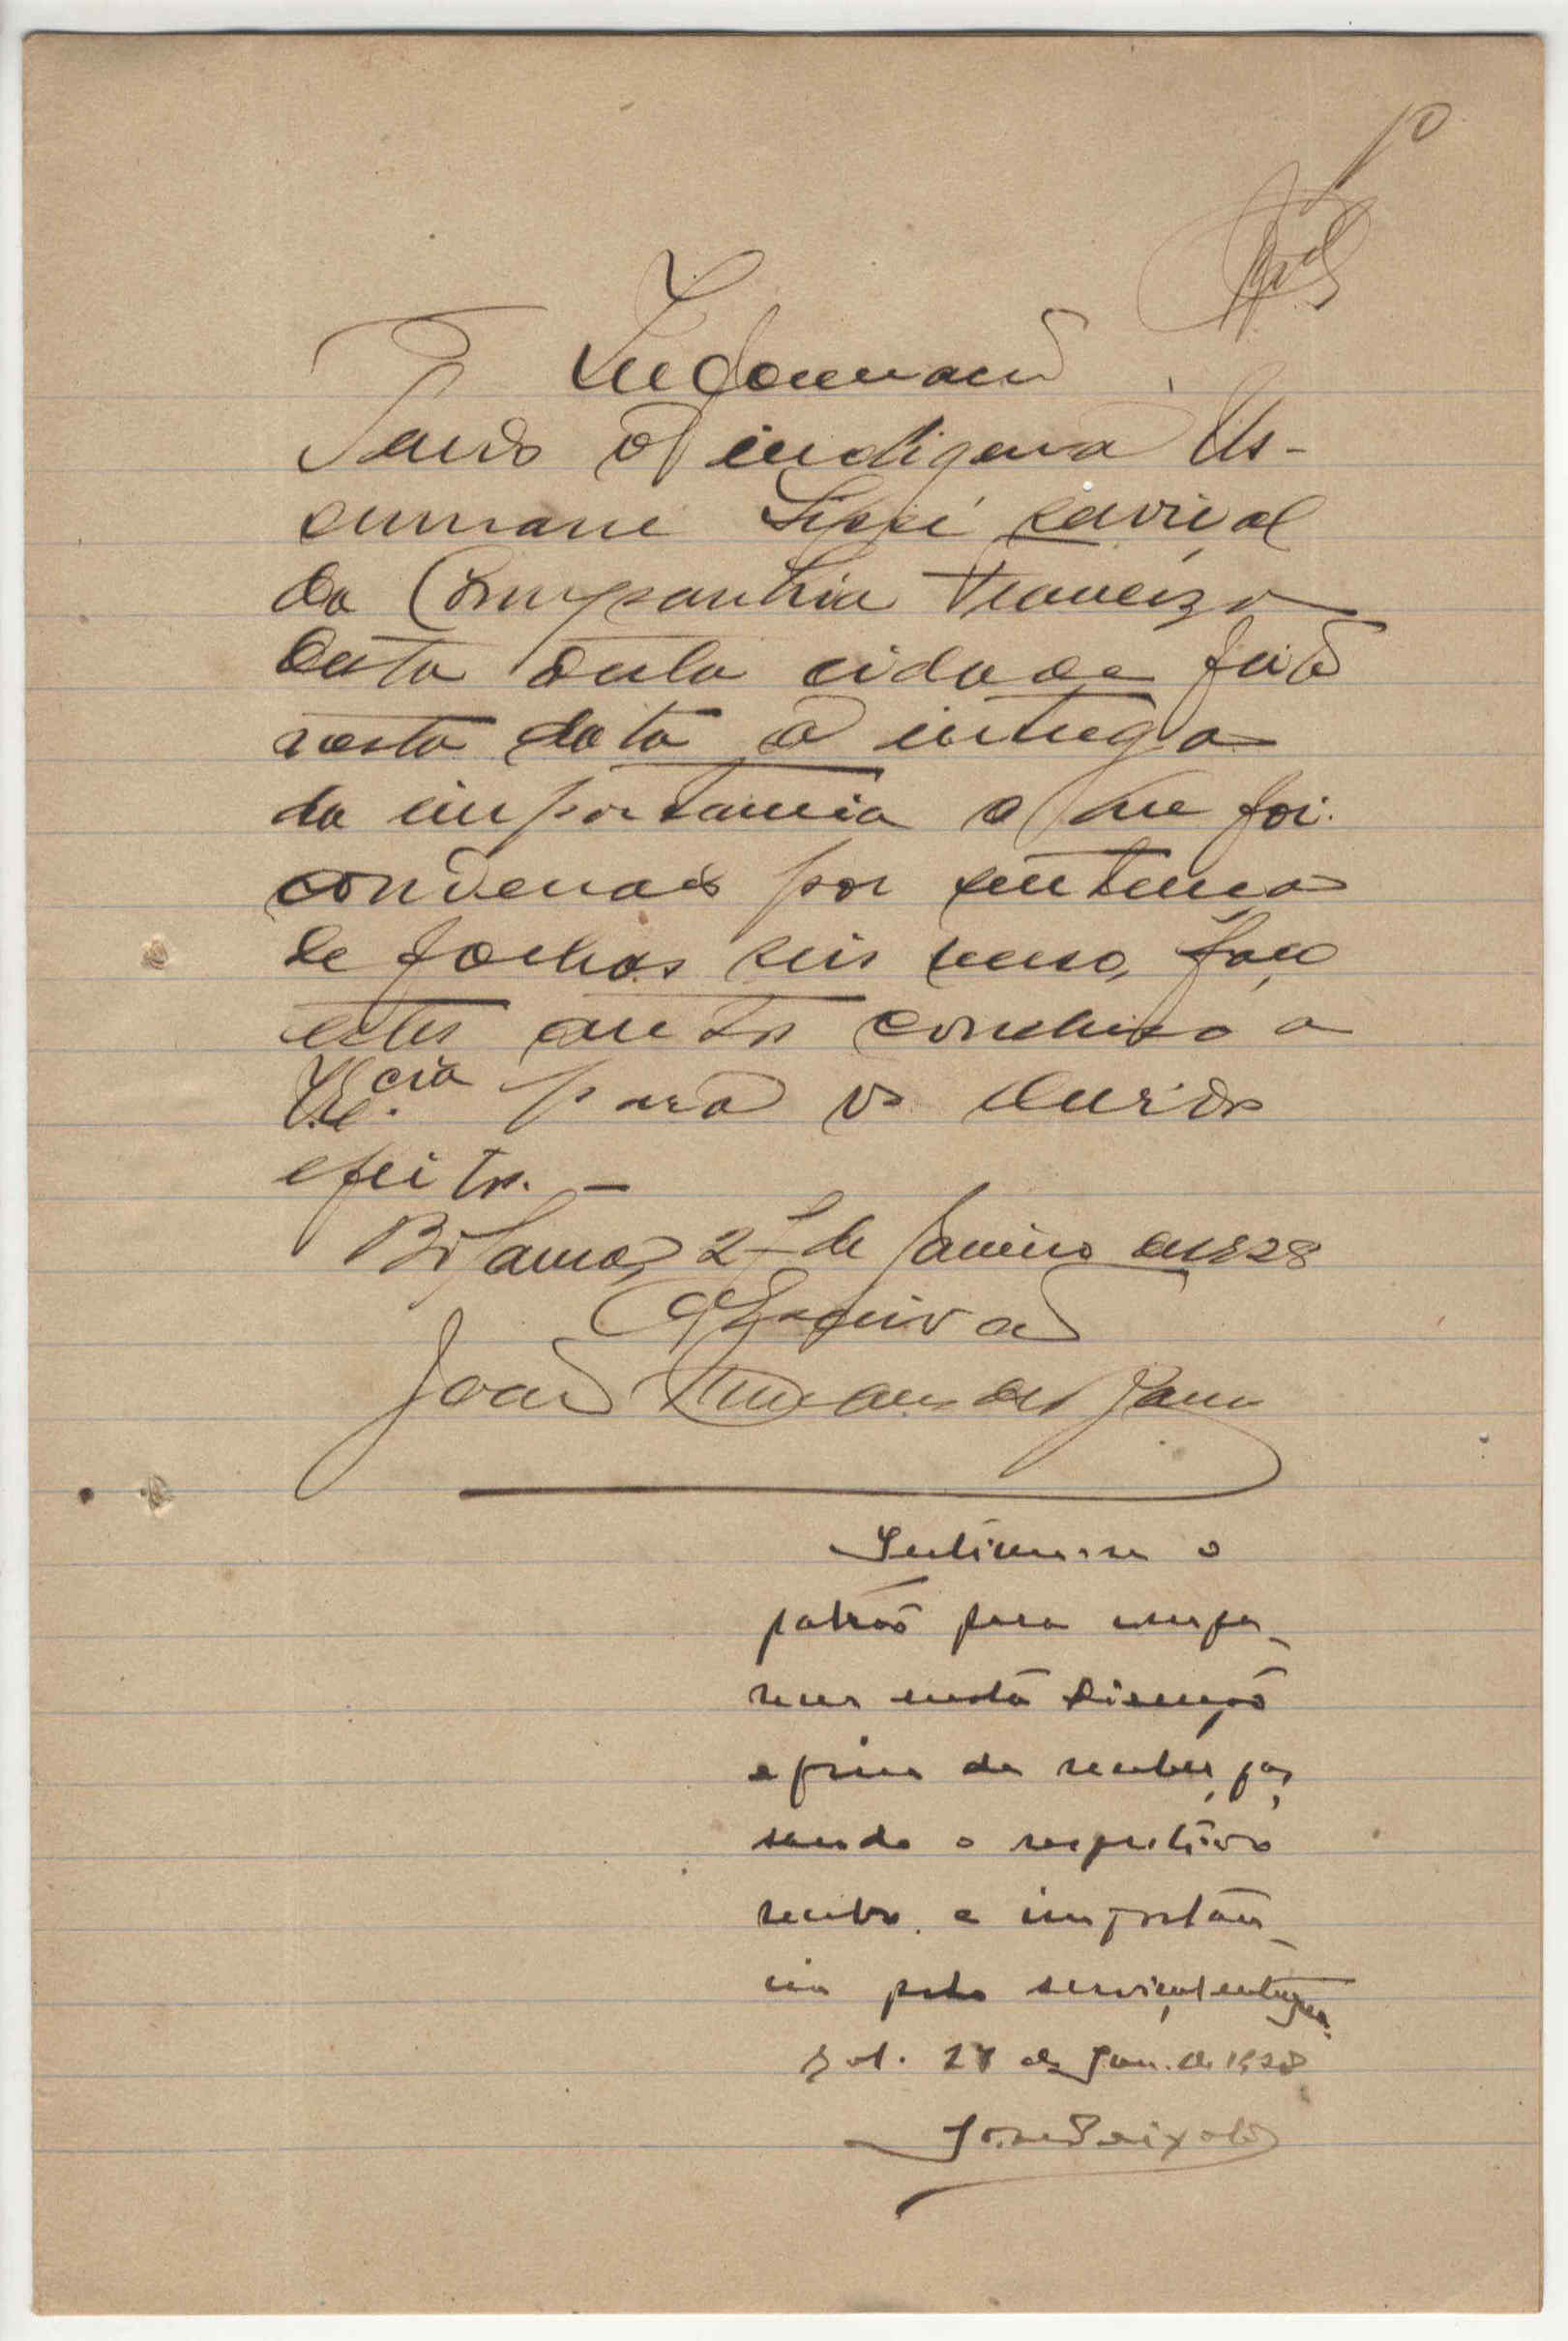 10
Informação
Tendo o indigena Us-
sumane Sissé serviçal
da Companhia Franceza
desta cidade feito
nesta data a intrega
da importancia a que foi
condenado por sentença
de folhas seis verso, faço
estes autos concluso a
V. Ex.cia para os devidos
efeitos. —
Bolama, 27 de Janeiro de 1928
O Escrivão
João
Intime-se o
patrão para compa-
recer nesta Direcção
a fim de receber, pas-
sando o respectivo
recibo, a importan-
cia pelo serviçal entregue.
Bol. 27 de Jan. de 1928
José Peixoto